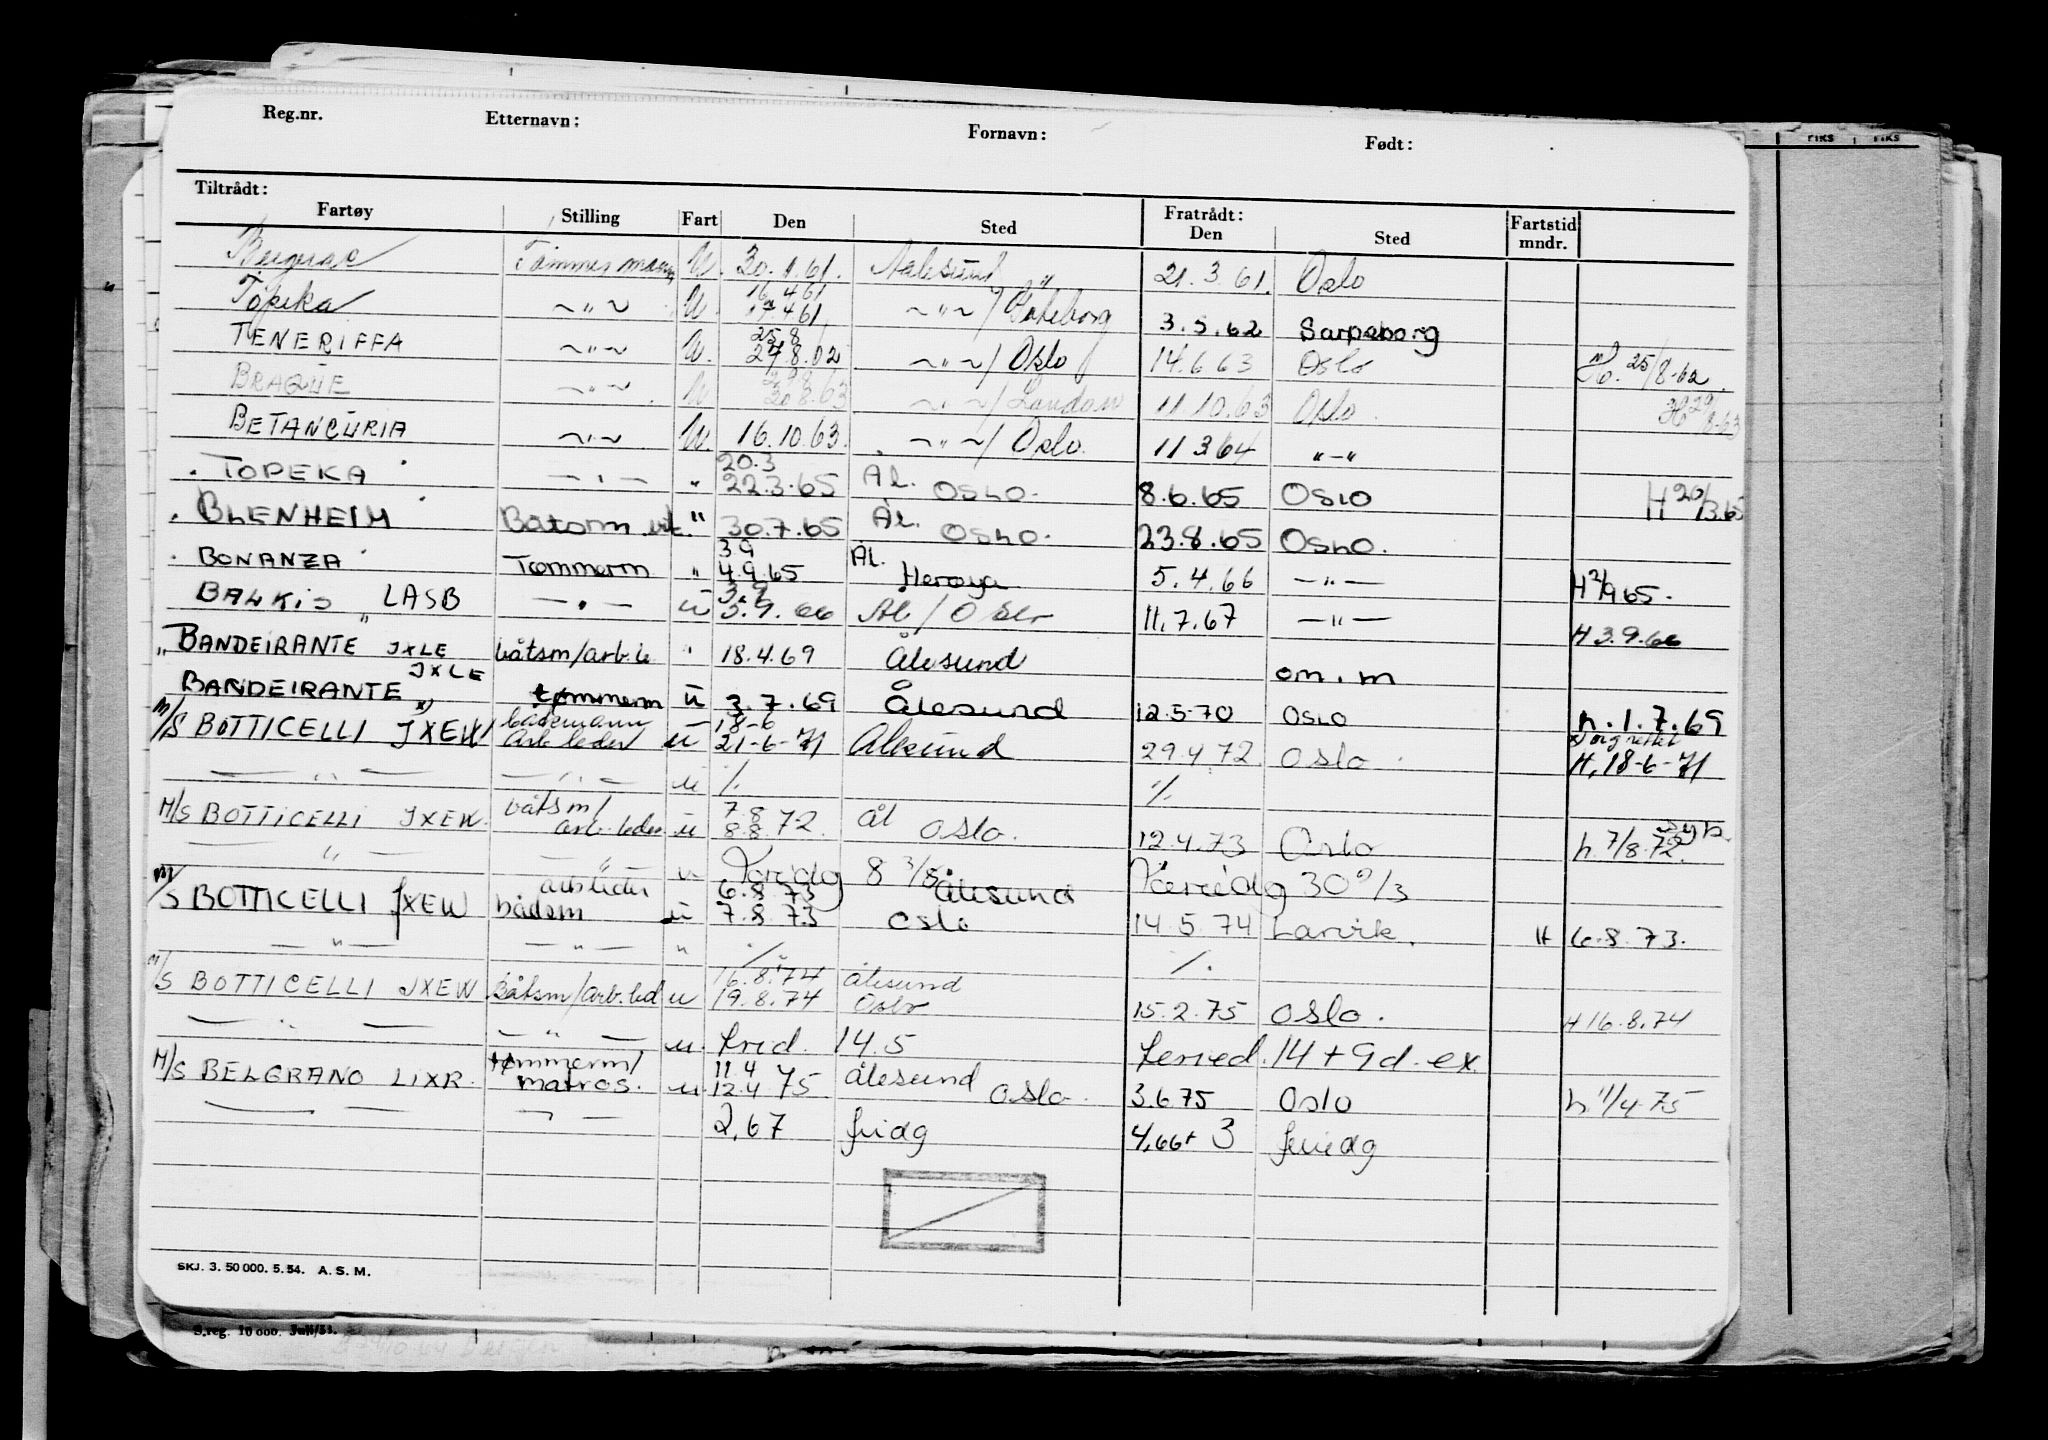 Reg.nr. Etternavn: Fornavn: Født:
FIKS FIKS
Tiltrådt: Fratrådt:
Fartøy Stilling Fart Den Sted Den Sted Fartstid mndr.
Tømmermann U. 30.1.61. Aalesund 21.3.61. Oslo
16.4.61
Topeka ~"~ U. 17.4.61 ~"~/Gøteborg 3.5.62 Sarpsborg
25.8
TENERIFFA ~"~ U. 27.8.62 ~"~/Oslo 14.6.63 Oslo H. 25/8-62.
BRAQUE ~"~ U 30.8.63 ~"~/London 11.10.63 Oslo. H 29/8-63
BETANCURIA ~"~ U. 16.10.63. ~"~/Oslo. 11.3.64 "-"
20.3
. TOPEKA —"— " 22.3.65 Ål. OSLO. 8.6.65 OSLO H 20/3.65
. BLENHEIM Båtsm. " 30.7.65 ÅL. OSLO. 23.8.65 OSLO.
3.9
. BONANZA Tømmerm " 4.9.65 ÅL. Herøya 5.4.66 —"— H 2/9 65.
3.9
BALKIS LASB —"— u 5.9.66 Ål/Oslo 11.7.67 —"— H 3.9.66
" BANDEIRANTE JXLE båtsm/arb.le " 18.4.69 Ålesund om.m
BANDEIRANTE JXLE tømmerm u 3.7.69 Ålesund 12.5-70 Oslo h.1.7.69
båtsmann 18-6
M/S BOTTICELLI JXEW arb leder u 21-6-71 Ålesund 29.4.72 Oslo. H, 18-6-71
—"— —"— u % %
M/S BOTTICELLI JXEW. båtsm/ arb.leder u 7.8 8.8 72. ål Oslo. 12.4.73 Oslo h. 7/8.72.
—"— —"— u 8 3/5 30 0/3
arbsleder 6.8.73 Ålesund
M/S BOTTICELLI JXEW bådsm u 7.8.73 Oslo 14.5.74 Larvik. H 6.8.73.
—"— —"— " % %.
16.8.74 ålesund
M/S BOTTICELLI JXEW Båtsm/arb.led u 19.8.74 Oslo 15.2.75 Oslo. H 16.8.74
—"— —"— u. frid. 14.5 feried. 14+9d.ex
M/S BELGRANO LIXR. tømmerm/ matros. u. 11.4 12.4 75 ålesund Oslo. 3.6.75 Oslo h. 11/4-75
—"— —"— 2,67 fridg 4,66+3 feriedg
SKJ. 3. 50 000. 5.54. A. S. M.
S.reg. 10 000. Juli/51.